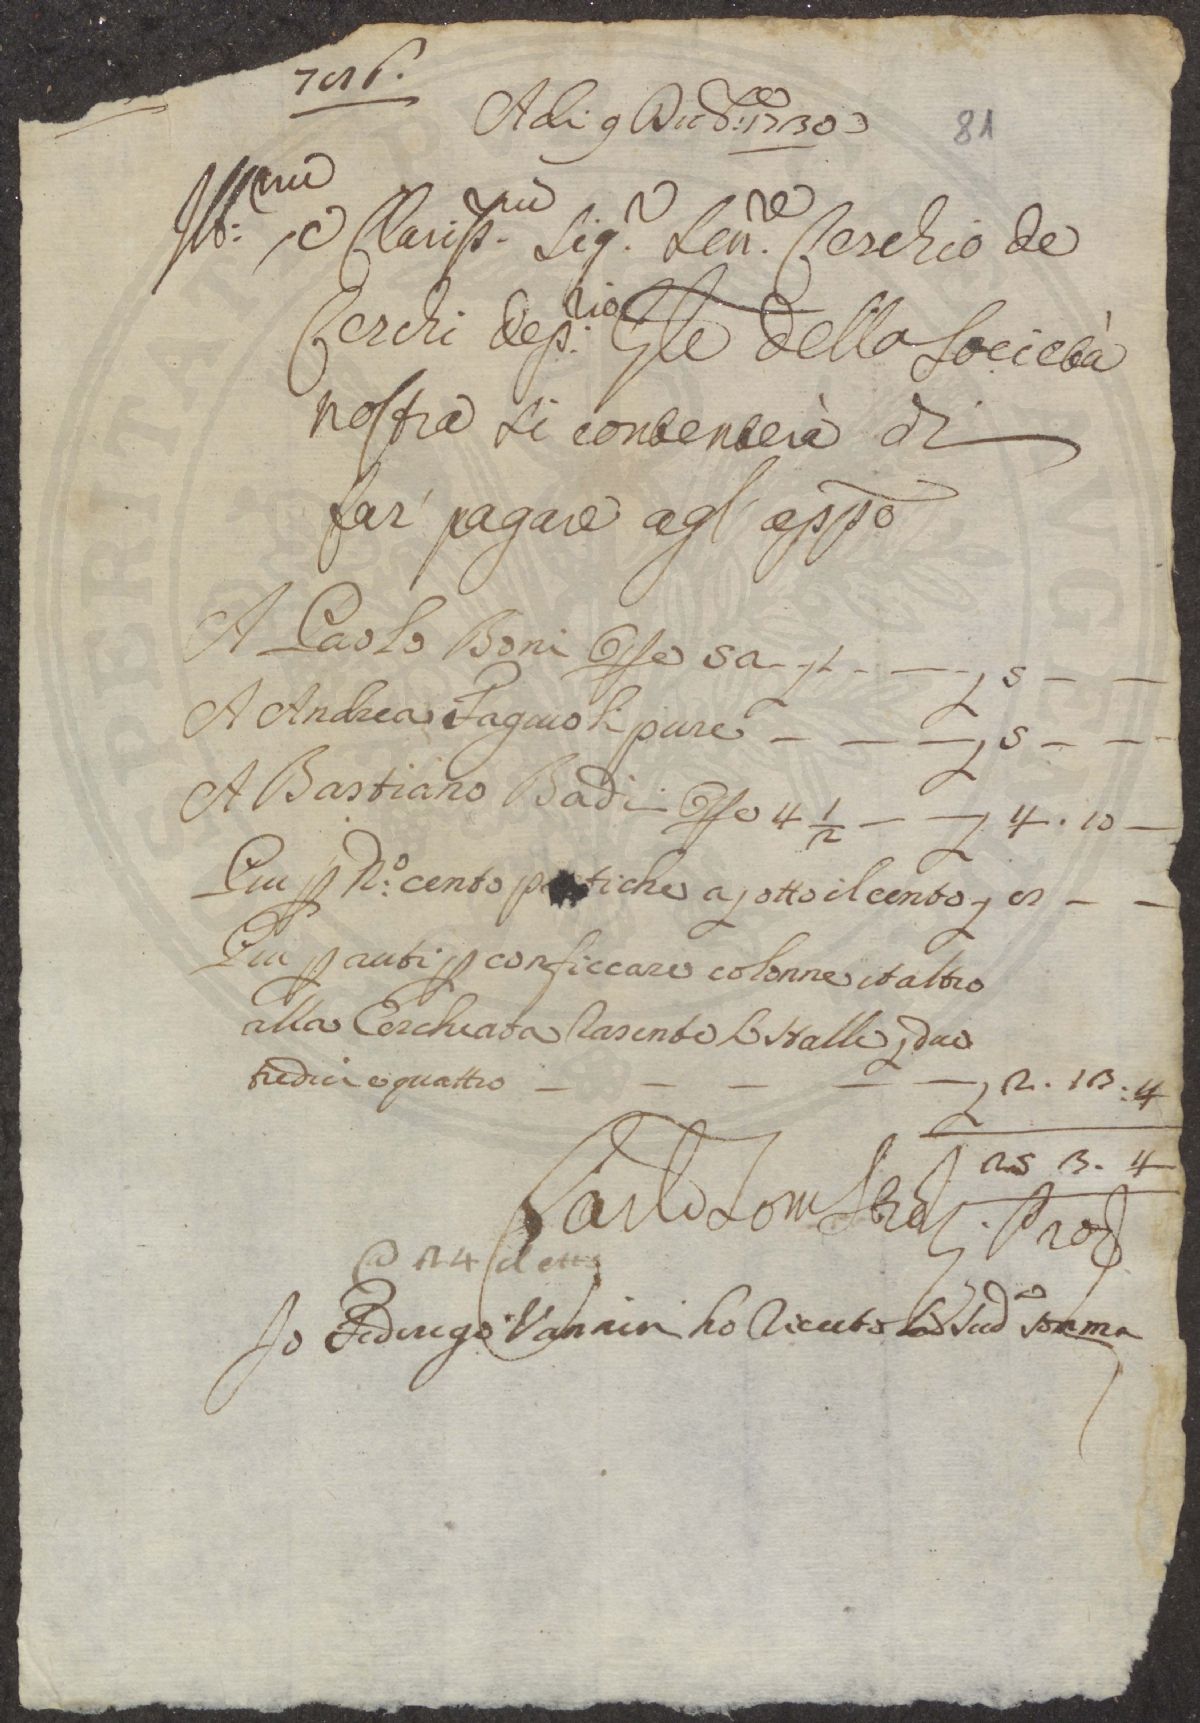 Adi 9 Dicbre: 1730
81
Illmi: e Clarissmi. Sigr. Senre. Cerchio de
Cerchi deprio: Gle della Società
nostra si contenterà di
far' pagare agl' appo
A Paolo Boni Gte 5 a 5
A Andrea Fagiuoli pure 5
A Bastiano Badi Gte 4 1/2 4. 10
Piu p No: cento pertiche a otto il cento 8
Piu p auti p conficcare colonne et altro
alla Cerchiata rasente le stalle due
tredici e quattro 2. 13: 4
25 3. 4
Carlo Prod
@ 24 detto
Io Federigo Vannini ho riceuto la sudo somma